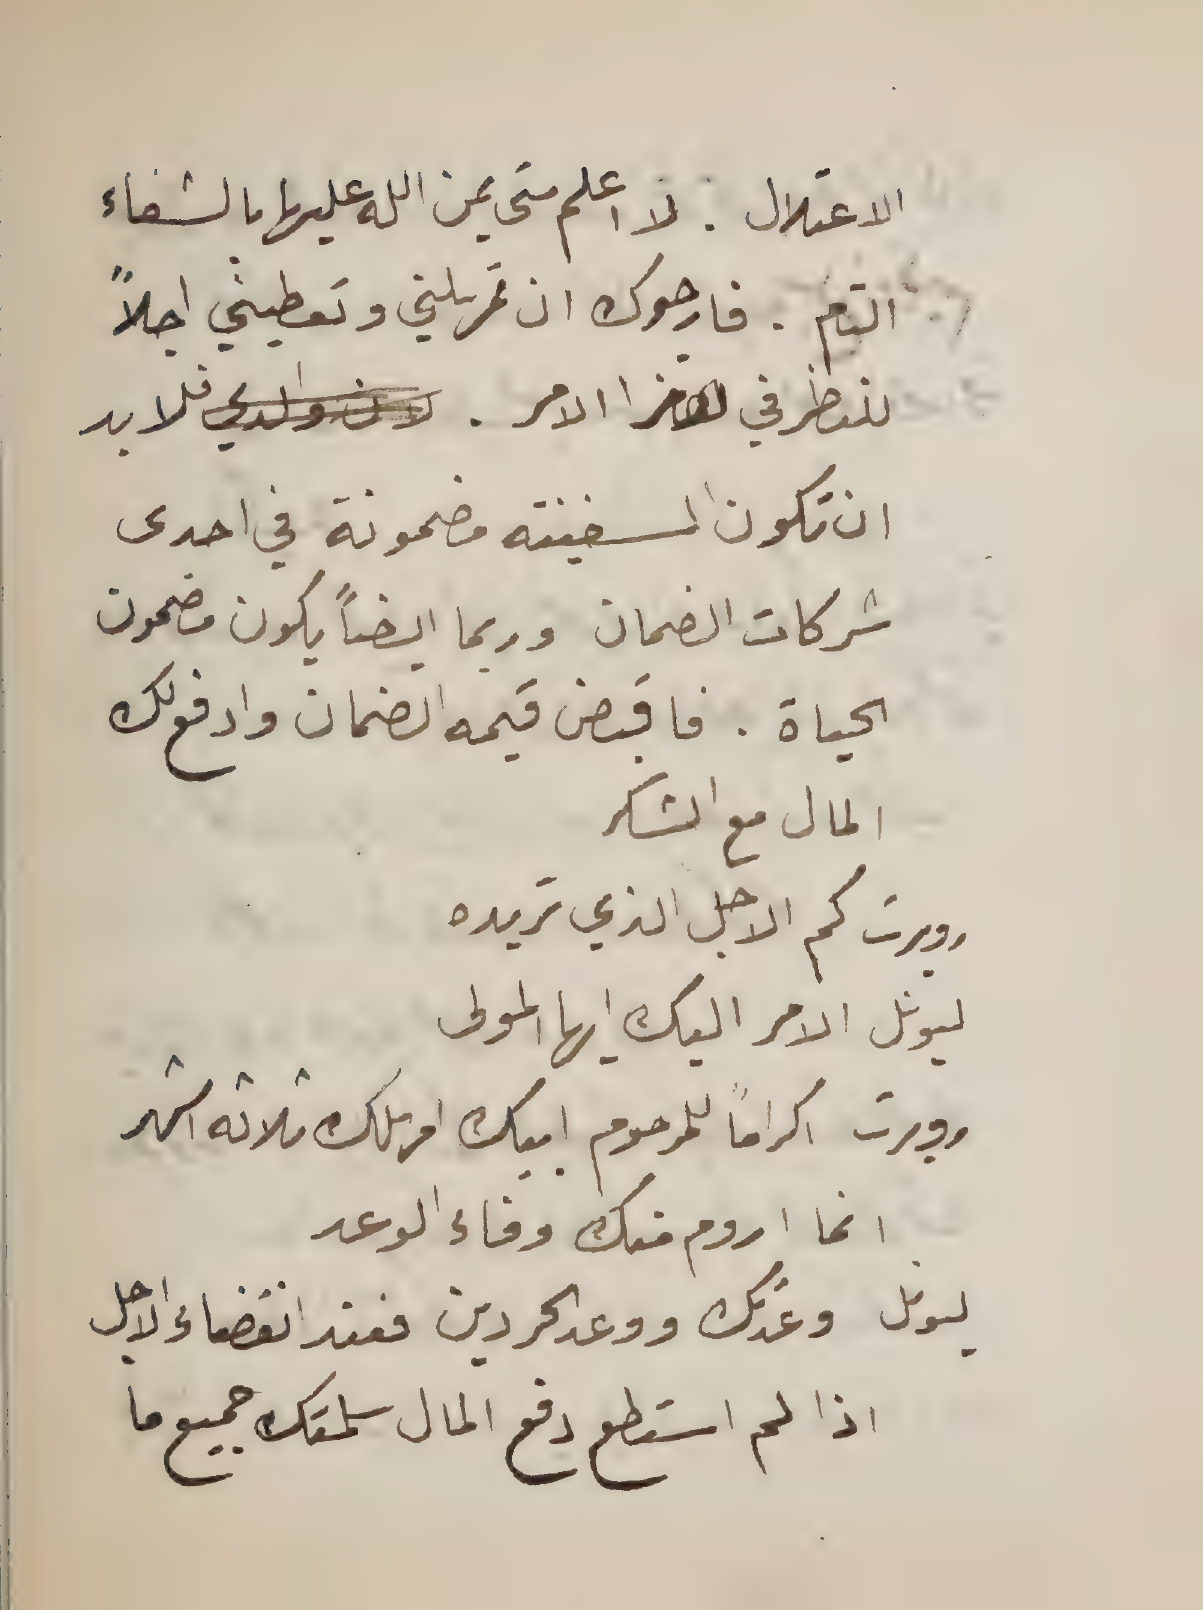 الاعتلال . لا اعلم متى يمن الله عليها بالشفاء
التام . فارجوك ان تمهلني وتعطيني اجلاً
للنظر في هذا الامر . لان والدي فلا بد
ان تكون السفينته مضمونة في احدى
شركات الضمان وربما ايضاً يكون مضمون
الحياة . فاقبض قيمه الضمان وادفع لك
المال مع الشكر
روبرت كم الاجل الذي تريده
ليونل الامر اليك ايها المولى
روبرت اكراماً للمرحوم ابيك امهلك ثلاثه اشهر
انما اروم منك وفاء الوعد
ليونل وعدتك ووعد الحر دين فعند انقضاء الاجل
اذا لم استطع دفع المال سلمتك جميع ما